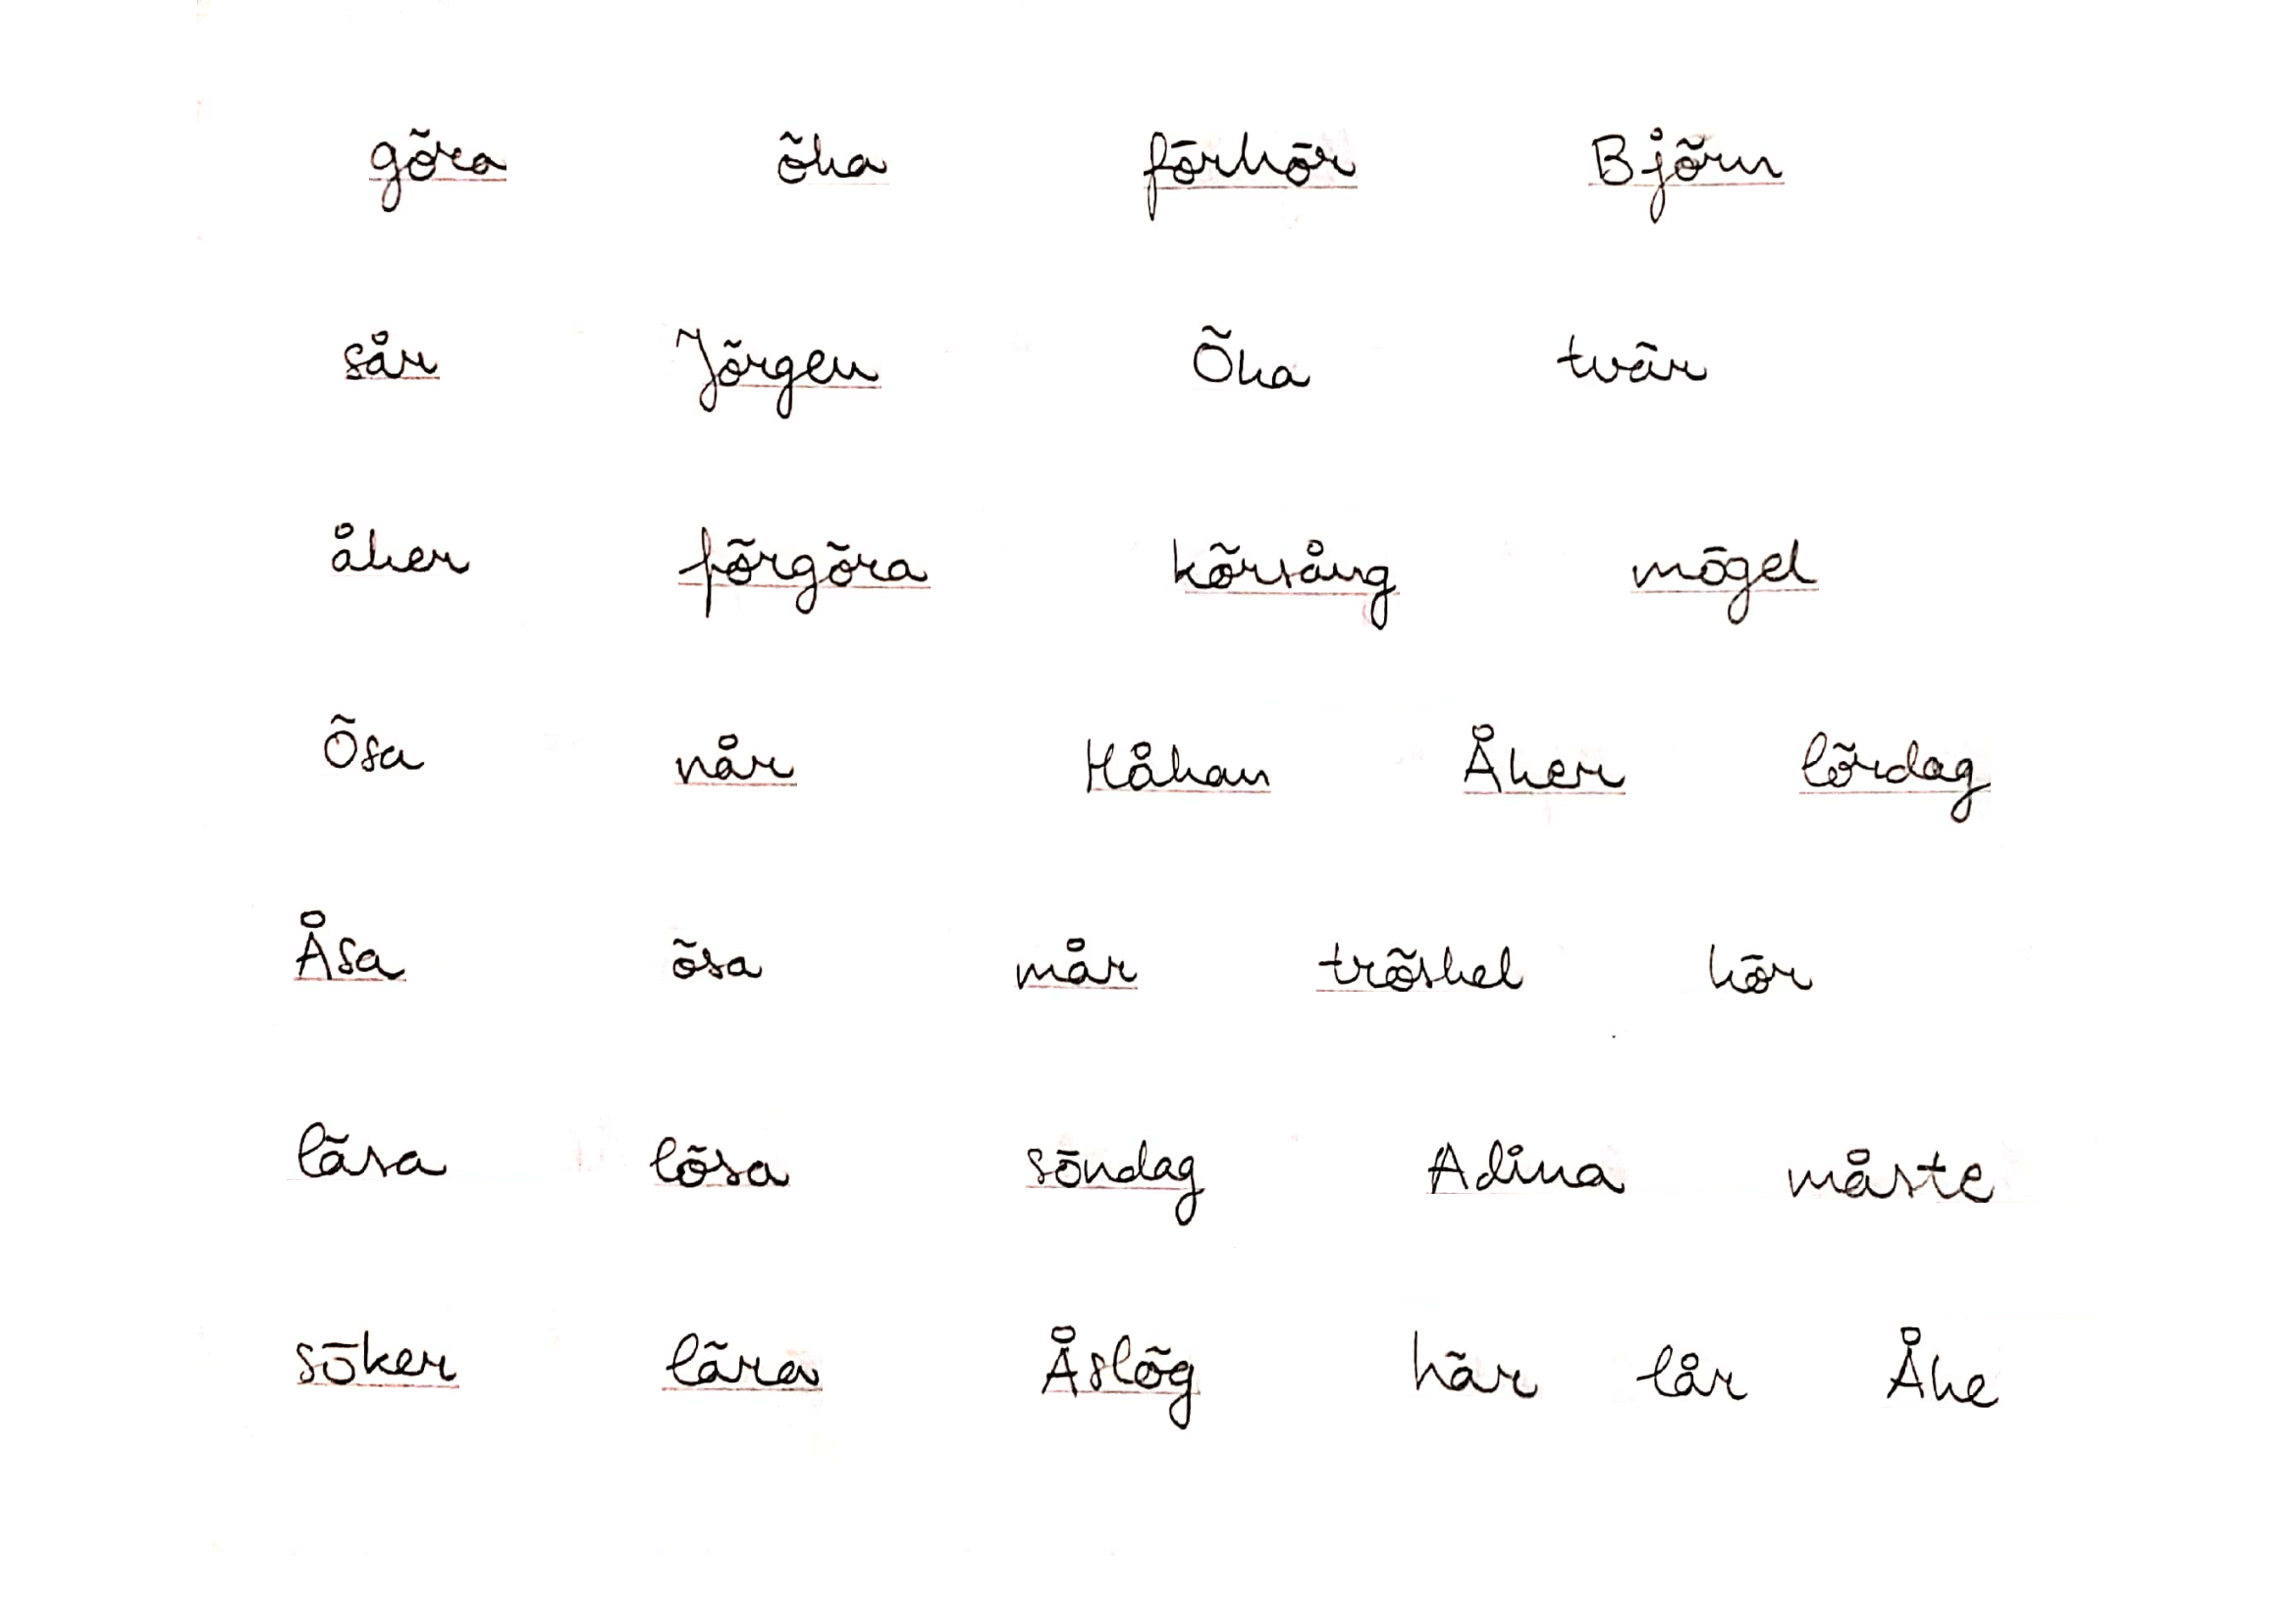 göra öka förhör Björn
sår Jörgen Öka tvär
åker förgöra körsång mögel
Ösa når Håkan Åker lördag
Åsa ösa mår tröskel hör
läsa lösa söndag Adina måste
söker lära Åslög här lår Åke